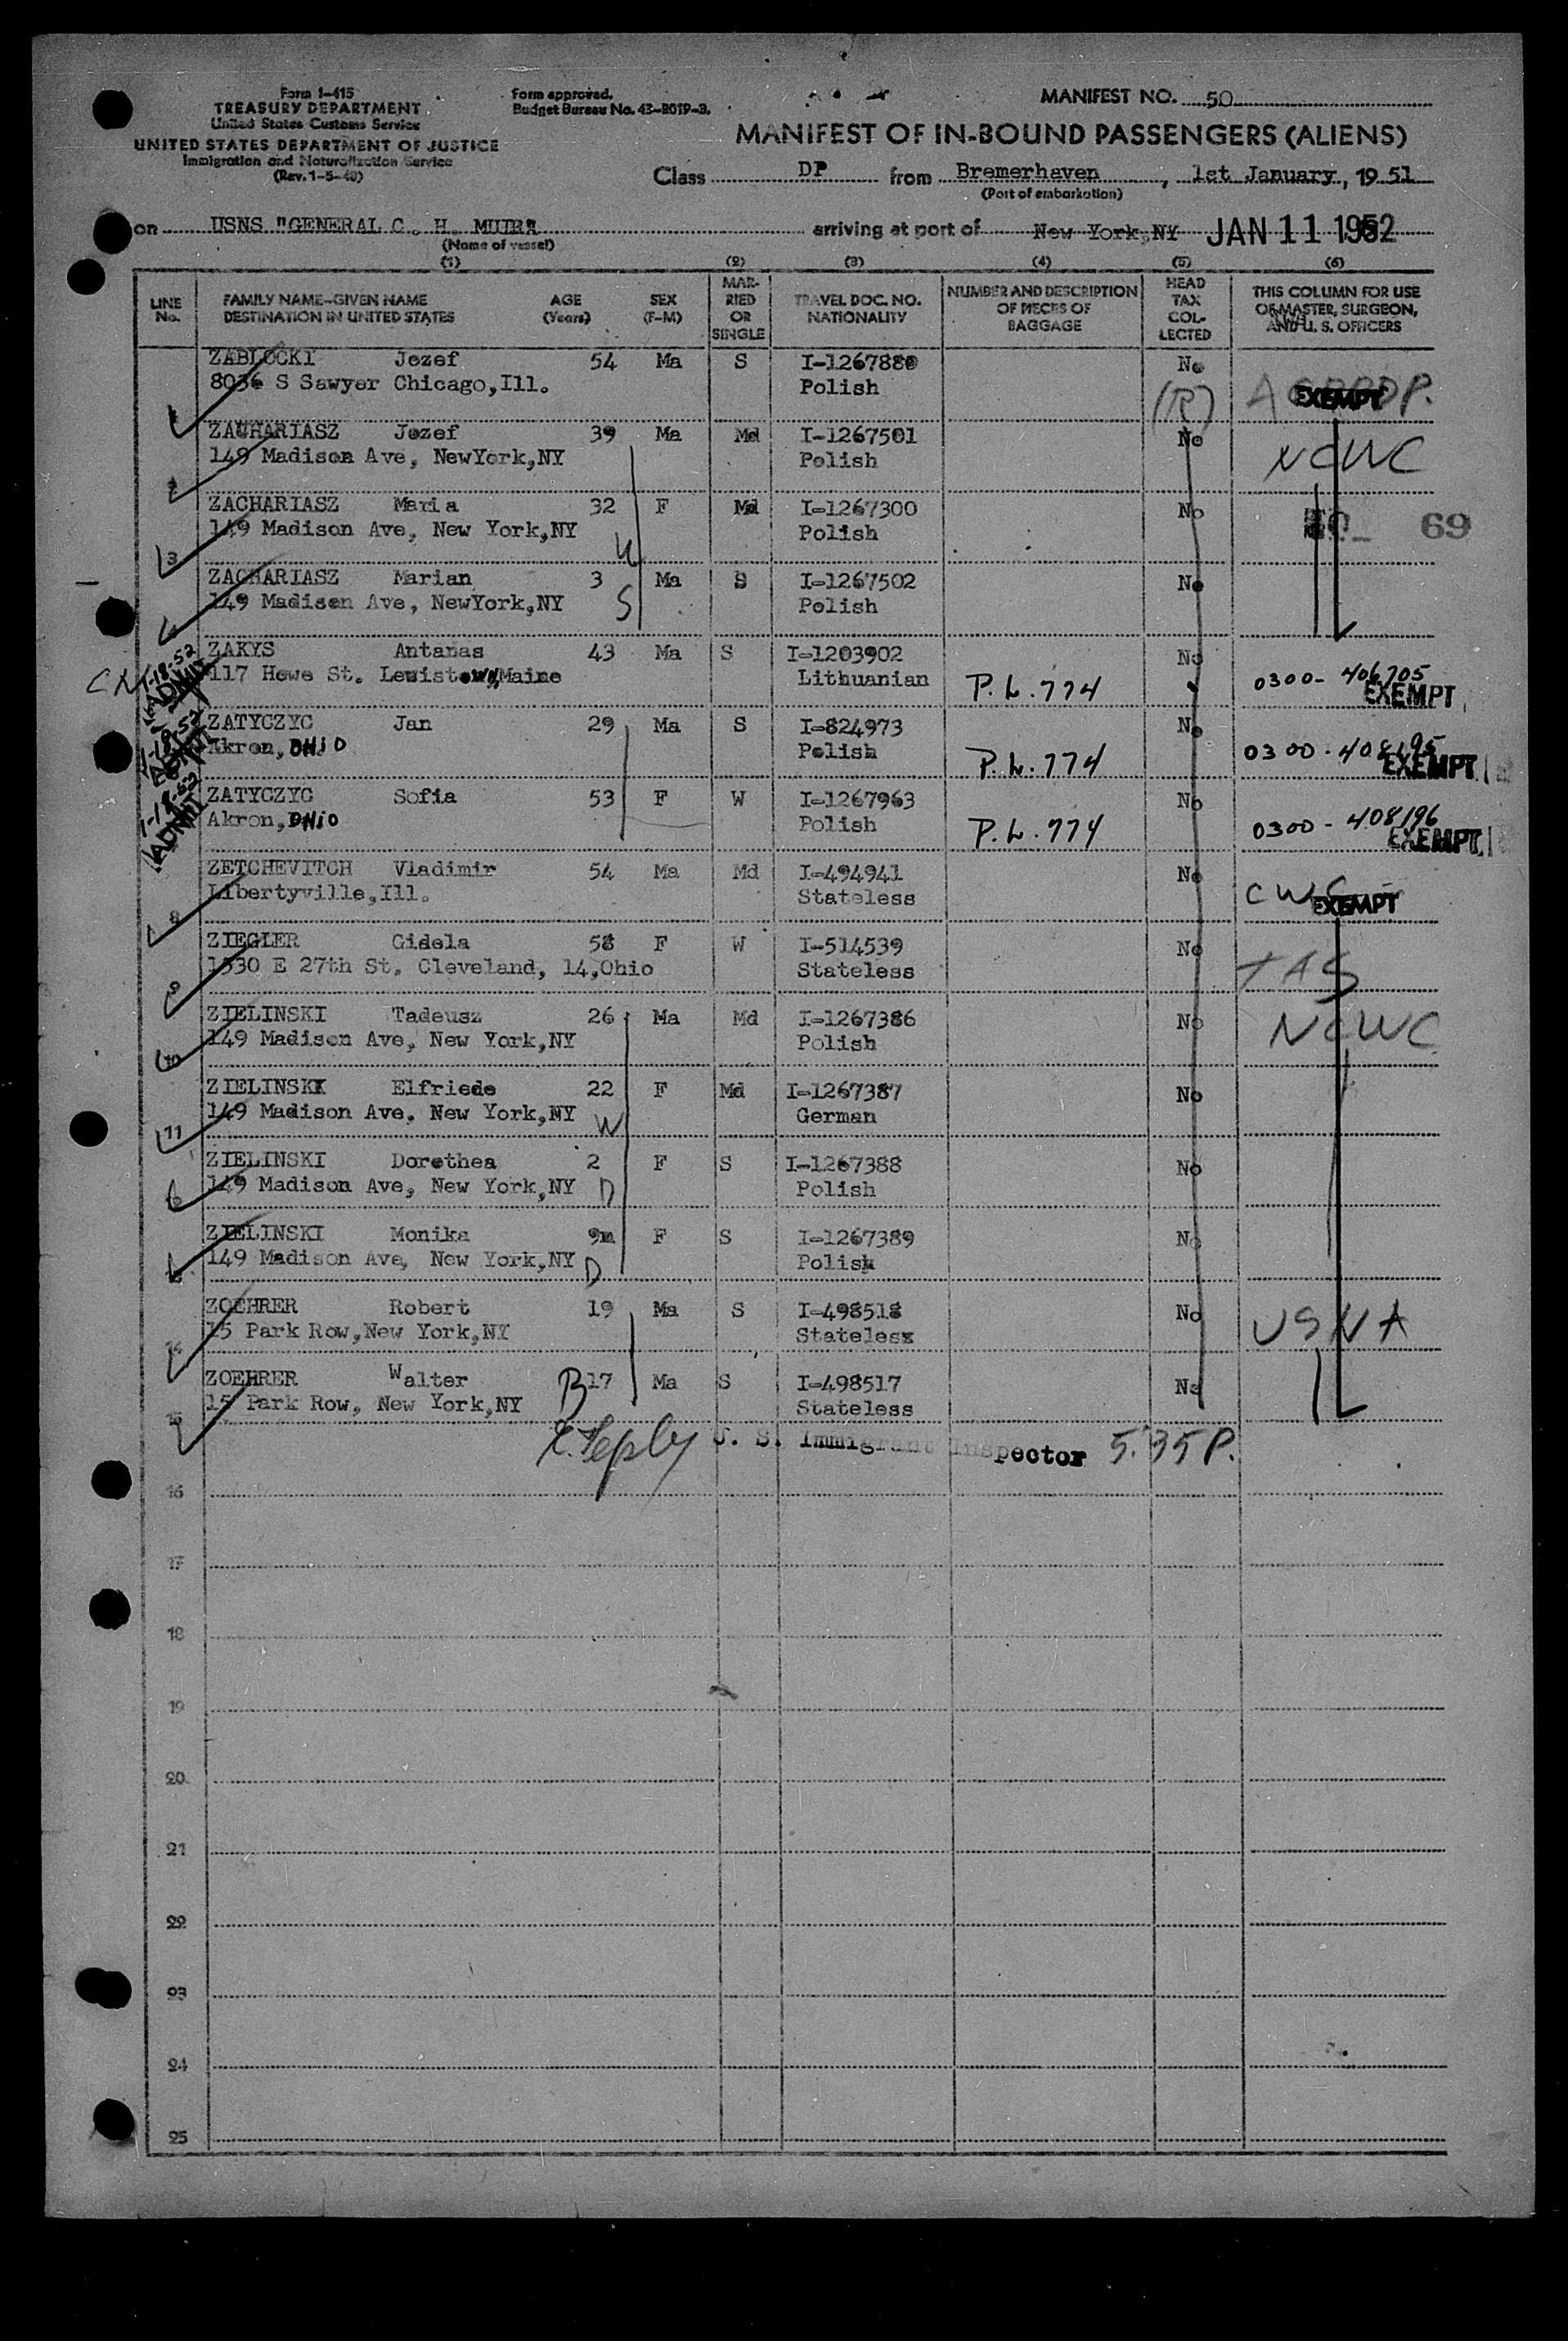 Form I-415
TREASURY DEPARTMENT
United States Customs Service
UNITED STATES DEPARTMENT OF JUSTICE
Immigration and Naturalization Service
(Rev. 1-5-49)
Form approved.
Budget Bureau No. 43-R019-3.
MANIFEST NO. 50
MANIFEST OF IN-BOUND PASSENGERS (ALIENS)
Class DP from Bremerhaven, 1st January, 19 51
(Port of embarkation)
on USNS "GENERAL C. H. MUIR" arriving at port of New York, NY JAN 11 1952
(Name of vessel)
(1) (2) (3) (4) (5) (6)
LINE No. FAMILY NAME-GIVEN NAME DESTINATION IN UNITED STATES AGE (Years) SEX (F-M) MARRIED OR SINGLE TRAVEL DOC. NO. NATIONALITY NUMBER AND DESCRIPTION OF PIECES OF BAGGAGE HEAD TAX COLLECTED THIS COLUMN FOR USE OF MASTER, SURGEON, AND U. S. OFFICERS
ZABLOCKI Jozef 54 Ma S I-1267880 No
8036 S Sawyer Chicago,Ill. Polish (R) EXEMPT
ZACHARIASZ Jozef 39 Ma Md I-1267501 No
149 Madison Ave, NewYork,NY Polish NCWC
ZACHARIASZ Maria 32 F Md I-1267300 No
3 149 Madison Ave, New York,NY W Polish 69
ZACHARIASZ Marian 3 Ma S I-1267502 No
149 Madison Ave, NewYork,NY S Polish
ZAKYS Antanas 43 Ma S I-1203902 No
1-18-52 ADMIT 117 Howe St. Lewistown,Maine Lithuanian P.L.774 0300-406705 EXEMPT
ZATYCZYC Jan 29 Ma S I-824973 No
1-18-52 ADMIT Akron, OHIO Polish P.L.774 0300-408195 EXEMPT
ZATYCZYC Sofia 53 F W I-1267963 No
1-18-52 ADMIT Akron, OHIO Polish P.L.774 0300-408196 EXEMPT
ZETCHEVITCH Vladimir 54 Ma Md I-494941 No
8 Libertyville,Ill. Stateless CWS EXEMPT
ZIEGLER Gidela 58 F W I-514539 No
9 1330 E 27th St. Cleveland, 14,Ohio Stateless
ZIELINSKI Tadeusz 26 Ma Md I-1267386 No
10 149 Madison Ave, New York,NY Polish NCWC
ZIELINSKI Elfriede 22 F Md I-1267387 No
11 149 Madison Ave, New York,NY W German
ZIELINSKI Dorothea 2 F S I-1267388 No
149 Madison Ave, New York,NY D Polish
ZIELINSKI Monika 9m F S I-1267389 No
149 Madison Ave, New York,NY D Polish
ZOEHRER Robert 19 Ma S I-498518 No
14 15 Park Row,New York,NY Stateless USNA
ZOEHRER Walter B 17 Ma S I-498517 No
15 15 Park Row, New York,NY Stateless
U. S. Immigrant Inspector 5:35 P.
16
17
18
19
20
21
22
23
24
25